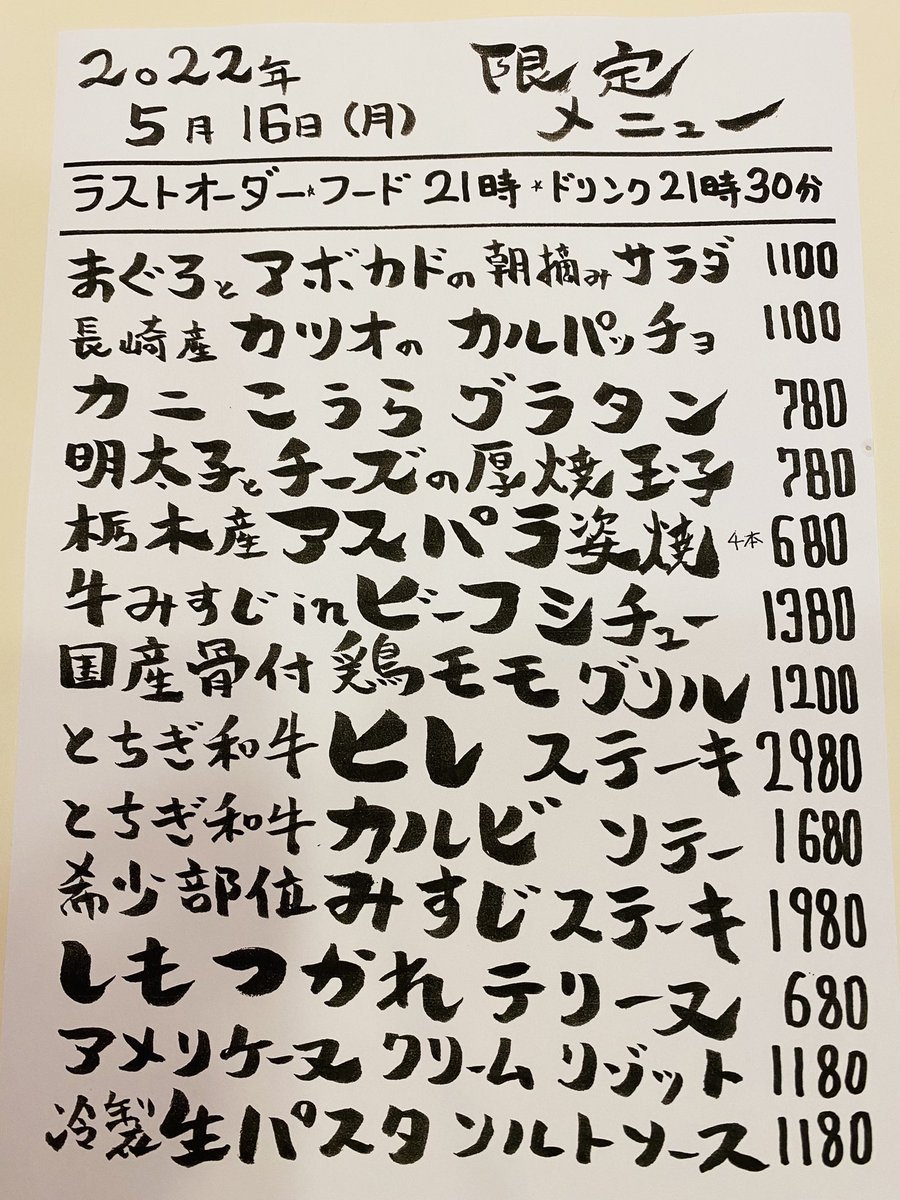 2022年 限定
5月16日(月) メニュー
ラストオーダー*フード 21時*ドリンク21時30分
まぐろとアボカドの朝摘みサラダ 1100
長崎産 カツオの カルパッチョ 1100
カニ こうら グラタン 780
明太子とチーズの厚焼玉子 780
栃木産アスパラ姿焼 4本 680
牛みすじinビーフシチュー 1380
国産骨付鶏モモグリル 1200
とちぎ和牛ヒレ ステーキ 2980
とちぎ和牛カルビ ソテー 1680
希少部位みすじステーキ 1980
しもつかれ テリーヌ 680
アメリケーヌ クリーム リゾット 1180
冷製生パスタ ソルトソース 1180